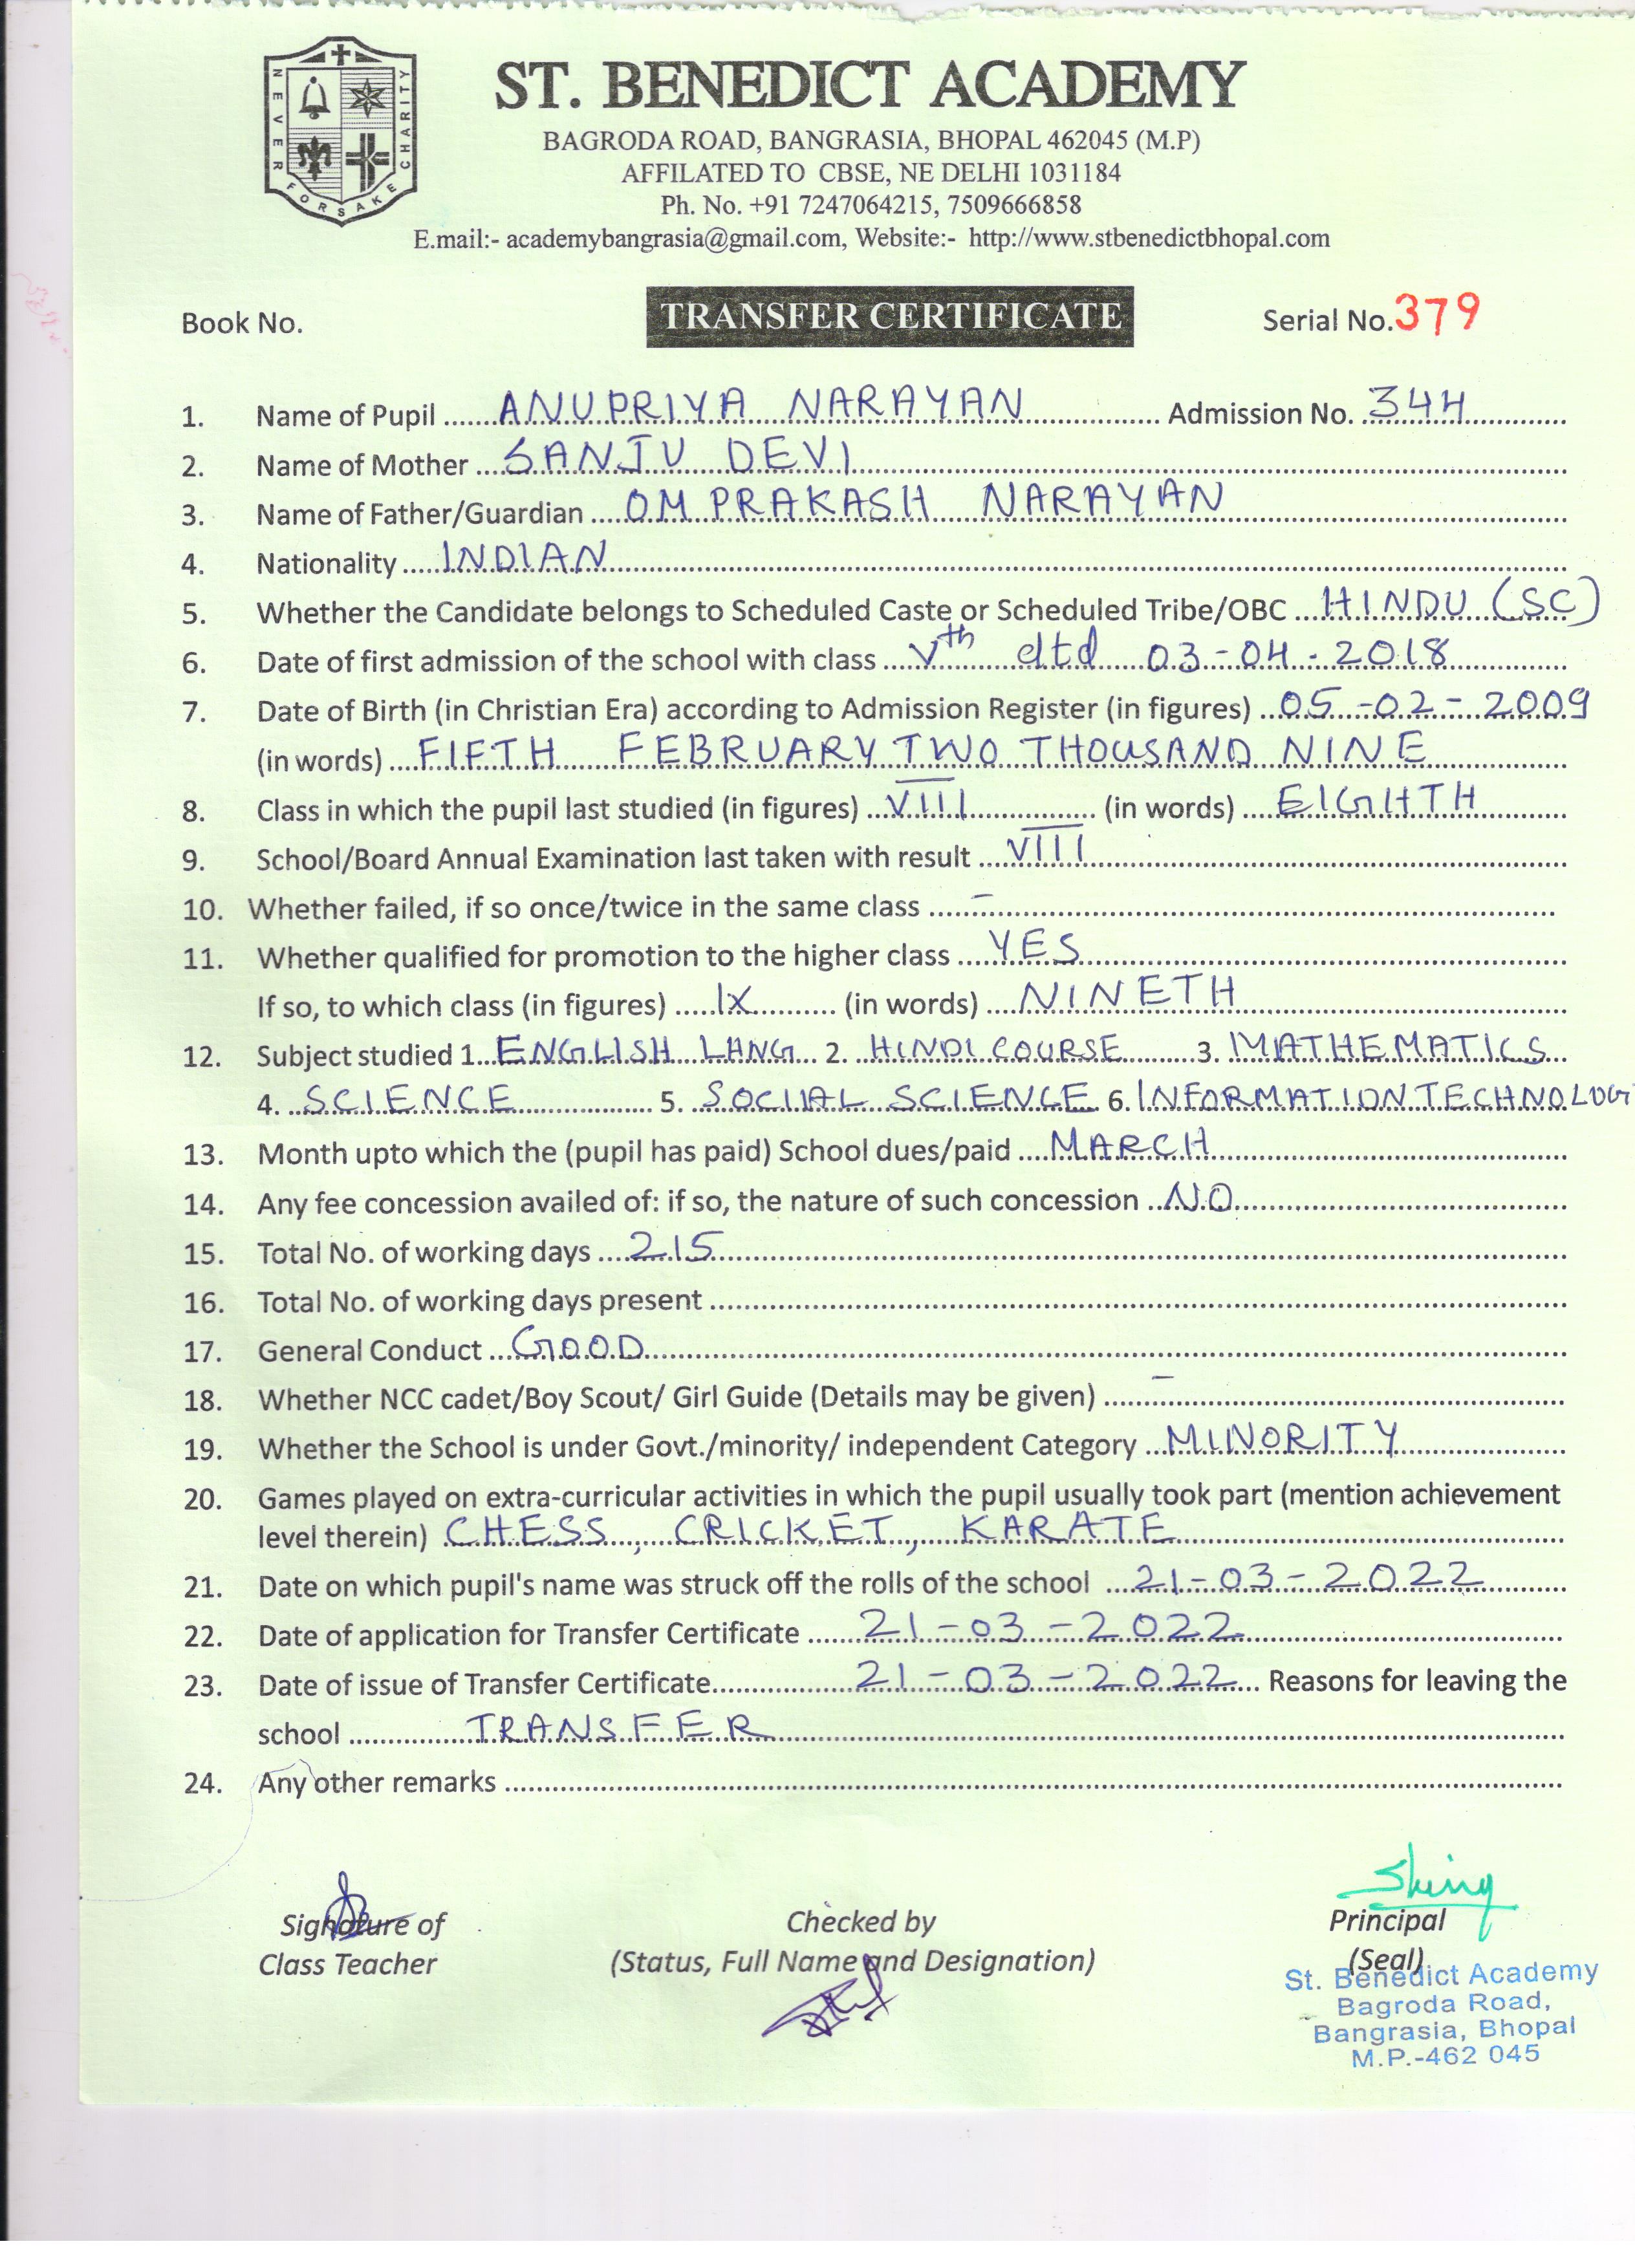 NEVER FORSAKE CHARITY
ST. BENEDICT ACADEMY
BAGRODA ROAD, BANGRASIA, BHOPAL 462045 (M.P)
AFFILATED TO CBSE, NE DELHI 1031184
Ph. No. +91 7247064215, 7509666858
E.mail:- academybangrasia@gmail.com, Website:- http://www.stbenedictbhopal.com
Book No. TRANSFER CERTIFICATE Serial No. 379
1. Name of Pupil ANUPRIYA NARAYAN Admission No. 344
2. Name of Mother SANJU DEVI
3. Name of Father/Guardian OM PRAKASH NARAYAN
4. Nationality INDIAN
5. Whether the Candidate belongs to Scheduled Caste or Scheduled Tribe/OBC HINDU (SC)
6. Date of first admission of the school with class Vth dtd 03-04-2018
7. Date of Birth (in Christian Era) according to Admission Register (in figures) 05-02-2009
(in words) FIFTH FEBRUARY TWO THOUSAND NINE
8. Class in which the pupil last studied (in figures) VIII (in words) EIGHTH
9. School/Board Annual Examination last taken with result VIII
10. Whether failed, if so once/twice in the same class -
11. Whether qualified for promotion to the higher class YES
If so, to which class (in figures) IX (in words) NINETH
12. Subject studied 1. ENGLISH LANG 2. HINDI COURSE 3. MATHEMATICS
4. SCIENCE 5. SOCIAL SCIENCE 6. INFORMATION TECHNOLOG
13. Month upto which the (pupil has paid) School dues/paid MARCH
14. Any fee concession availed of: if so, the nature of such concession NO
15. Total No. of working days 215
16. Total No. of working days present
17. General Conduct GOOD
18. Whether NCC cadet/Boy Scout/ Girl Guide (Details may be given) -
19. Whether the School is under Govt./minority/ independent Category MINORITY
20. Games played on extra-curricular activities in which the pupil usually took part (mention achievement
level therein) CHESS, CRICKET, KARATE
21. Date on which pupil's name was struck off the rolls of the school 21-03-2022
22. Date of application for Transfer Certificate 21-03-2022
23. Date of issue of Transfer Certificate 21-03-2022 Reasons for leaving the
school TRANSFER
24. Any other remarks
Shiny
Signature of Checked by Principal
Class Teacher (Status, Full Name and Designation) (Seal)
St. Benedict Academy
Bagroda Road,
Bangrasia, Bhopal
M.P.-462 045